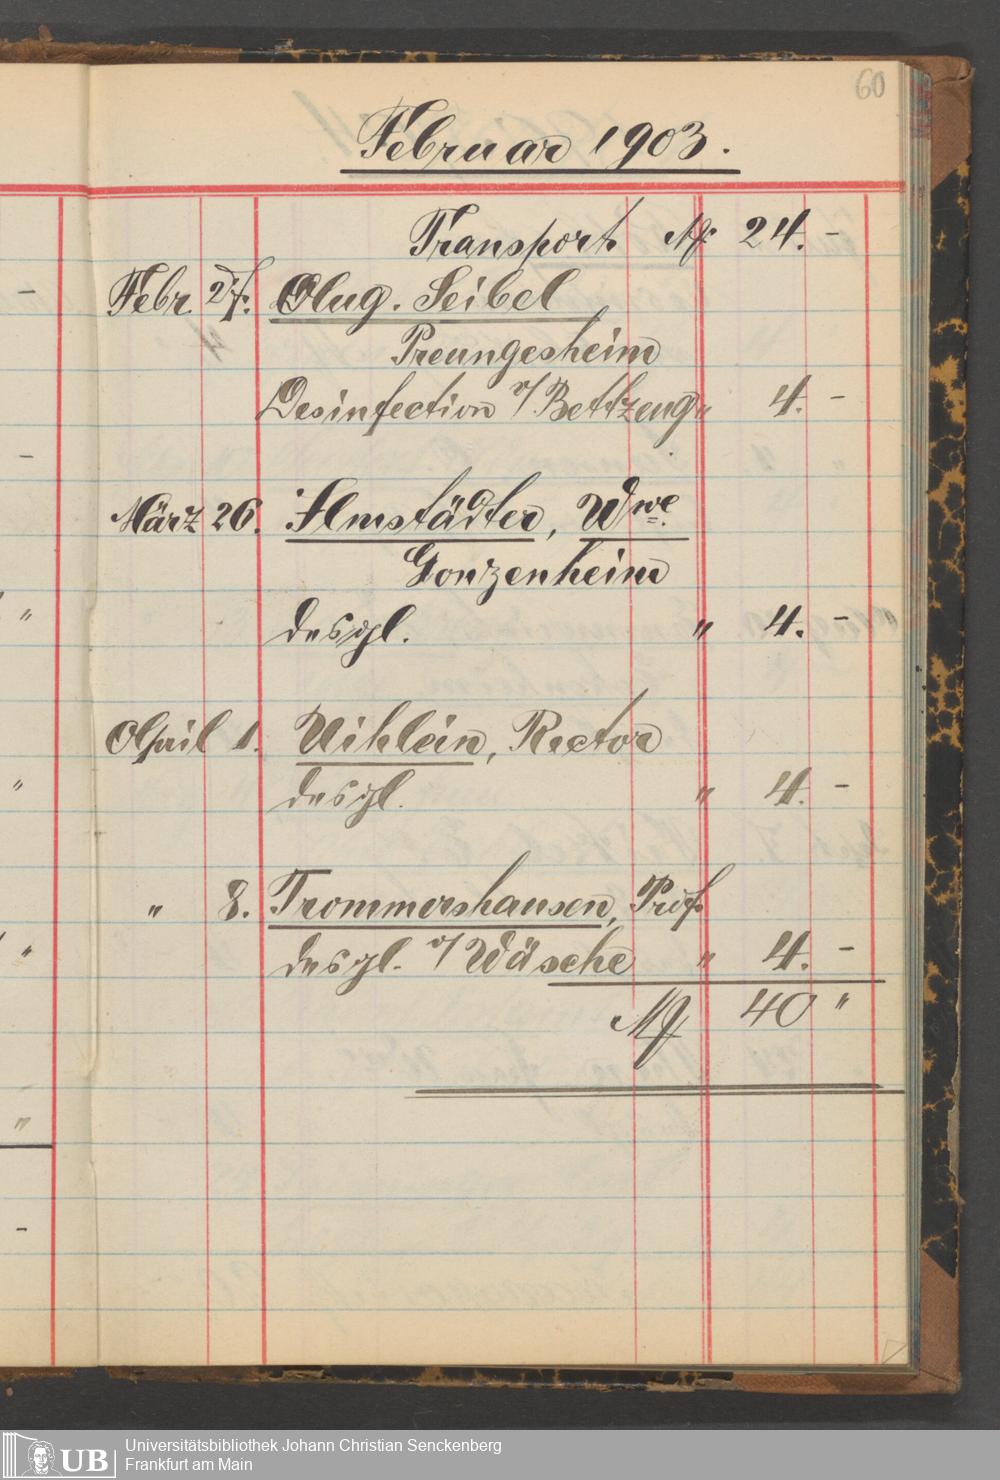 60
Februar 1903.
Transport M 24. -
Febr. 27. Aug. Seibel
Preungesheim
Desinfection v/ Bettzeug " 4. -
März 26. Armstädter, Wwe.
Gonzenheim
desgl. " 4. -
April 1. Uihlein, Rector
desgl. " 4. -
" 8. Trommershausen, Prof.
desgl. v/ Wäsche " 4. -
M 40 "
UB
Universitätsbibliothek Johann Christian Senckenberg
Frankfurt am Main